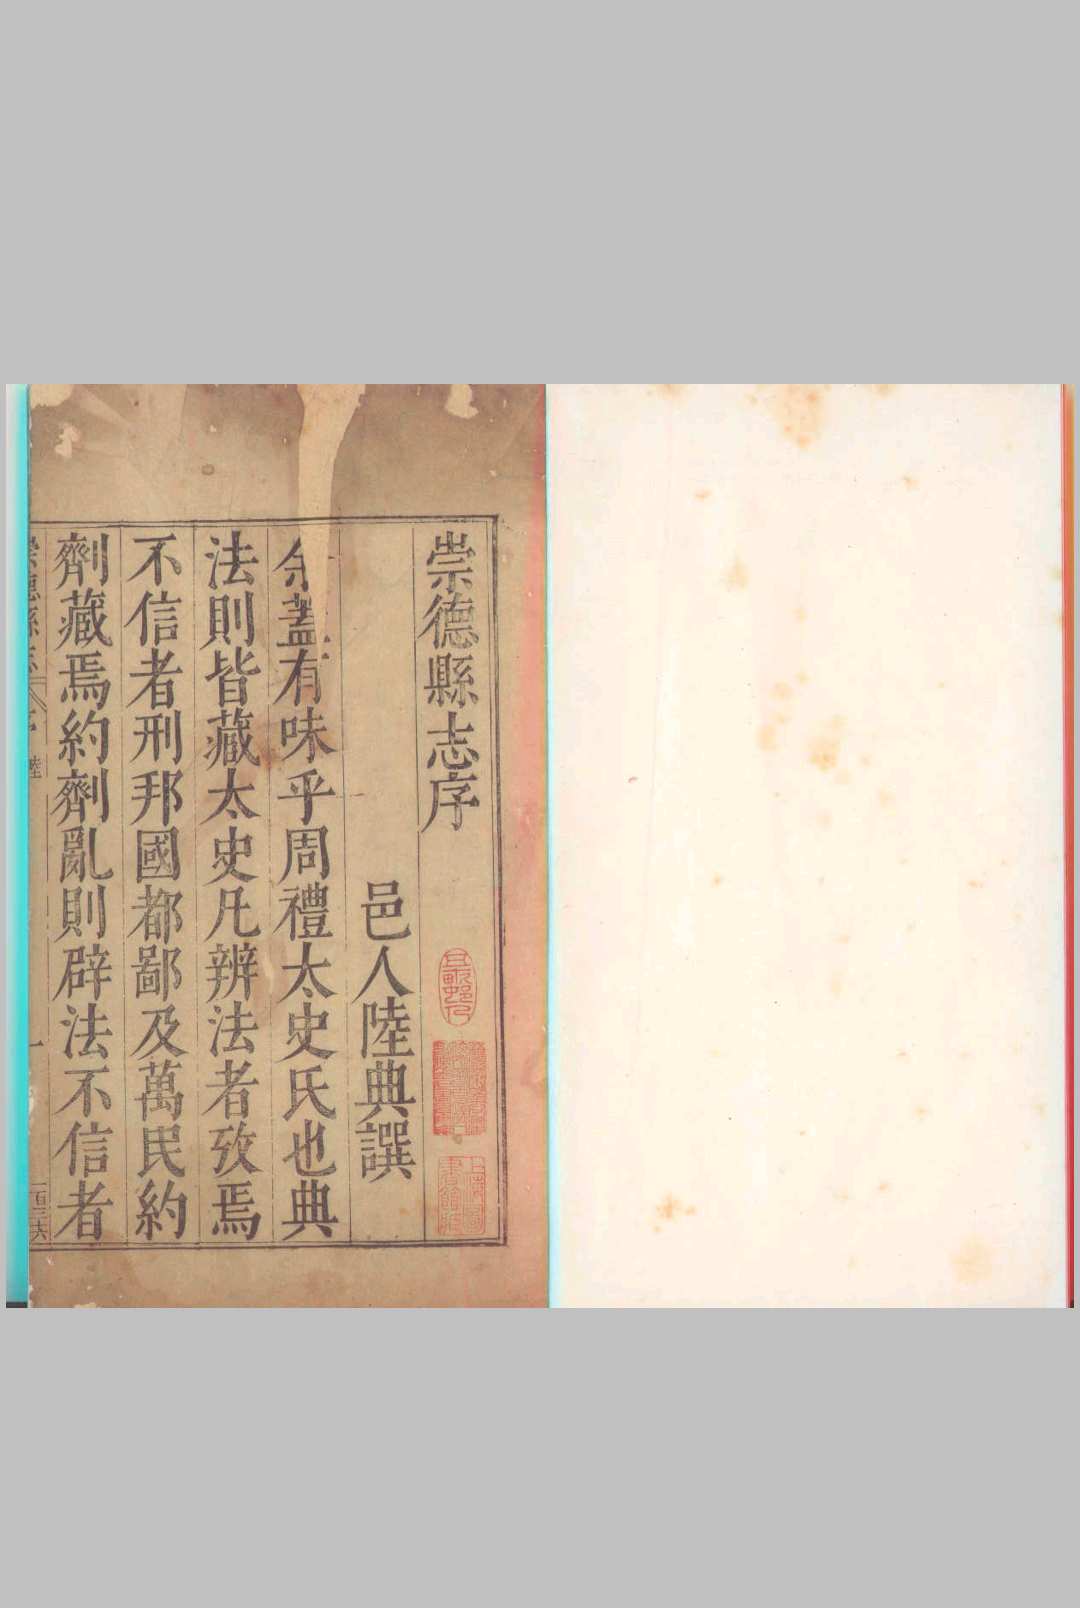 崇德縣志序
邑人陸典譔
余蓋有味乎周禮太史氏也典
法則皆藏太史凡辨法者攷焉
不信者刑邦國都鄙及萬民約
劑藏焉約劑亂則辟法不信者
崇德縣志 序 陸 一
上海圖書館藏